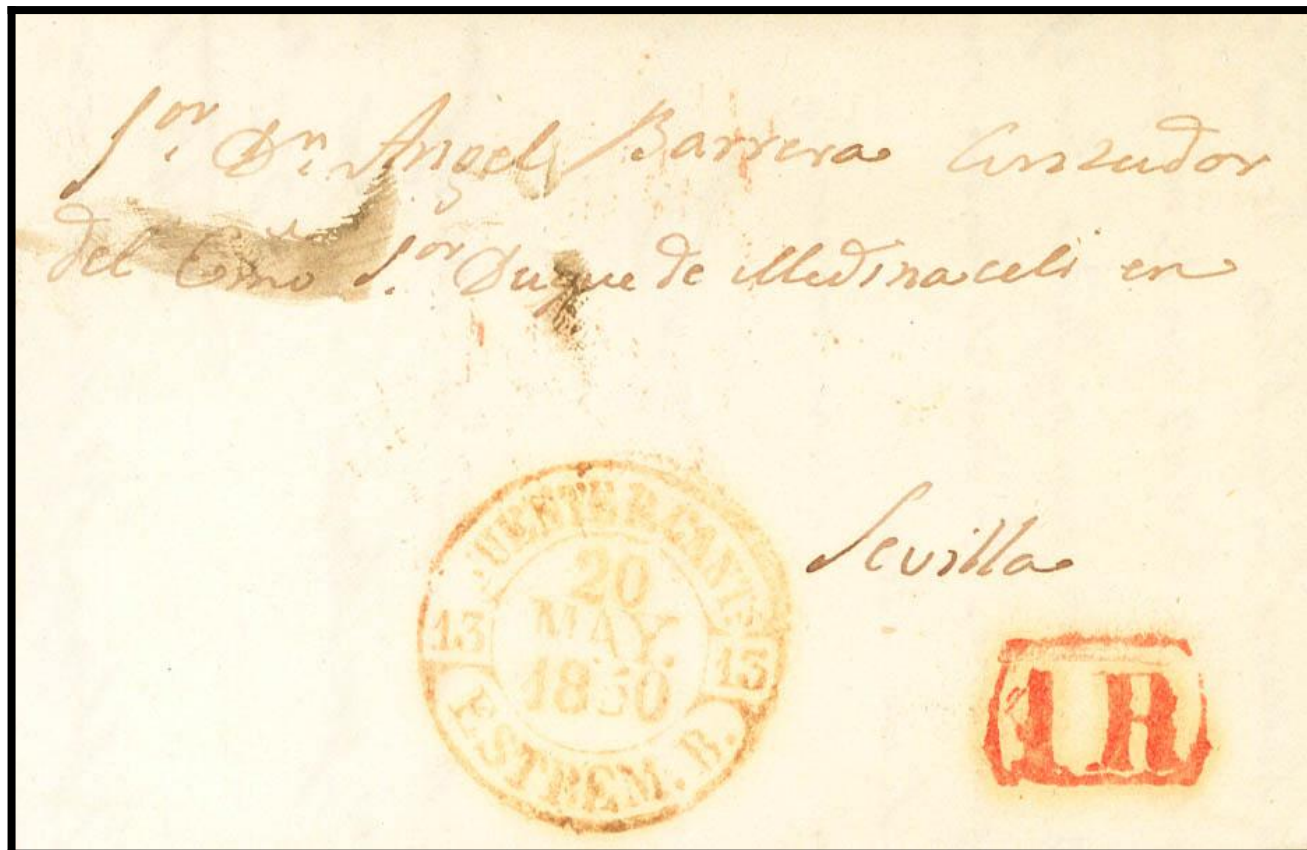 Sor. Dn. Angel Barrera Conzudor
del Exmo Sor. Duque de Medinaceli en
Sevilla
FUENTE D. CANTS
13 20 13
MAY.
1850
ESTREM. B.
1 R